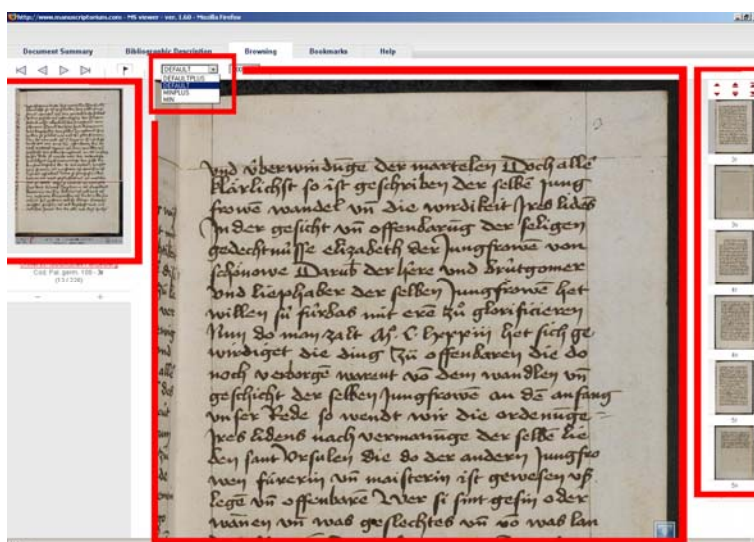 http://www.manuscriptorium.com - MS viewer - ver. 1.60 - Mozilla Firefox
Document Summary
Bibliographic Description
Browning
Bookmarks
Help
DEFAULT
DEFAULTPLUS
DEFAULT
MINPLUS
MIN
Cod. Pal. germ. 100 - 3r
(13/226)
vnd überwindūge der martelen Doch alle
klårlichst so ist geschriben der selbē Jung
frowē wandel vn̄ die wirdikeit Jres lidēs
Jn der gesicht vn̄ offenbarūg der seligen
gedechtnüsse elizabeth der Jungfrowē von
schönowe Darūb der here vnd brütgomer
vnd liephaber der selben Jungfrowē het
willen sü fürbas mit erē zü glorificieren
Nun do man zalt C lxxxiii het sich ge
wirdiget die ding zü offenbaren die do
noch verborgē warent vō dem wandlen vn̄
geschicht der selbē Jungfrowē an dē anfang
vnser Rede so wendt wir die ordenūge
Jres lidens nach vermanūge der selbē lie
ben sant Vrsulen die do der andern Jungfro
wen fürerin vn̄ maisterin ist gewesen vß
legē vn̄ offenbarē Wer si sint gesin oder
wanen vn̄ was geslechtes vn̄ vō was lan
3v
4r
4v
5r
5v